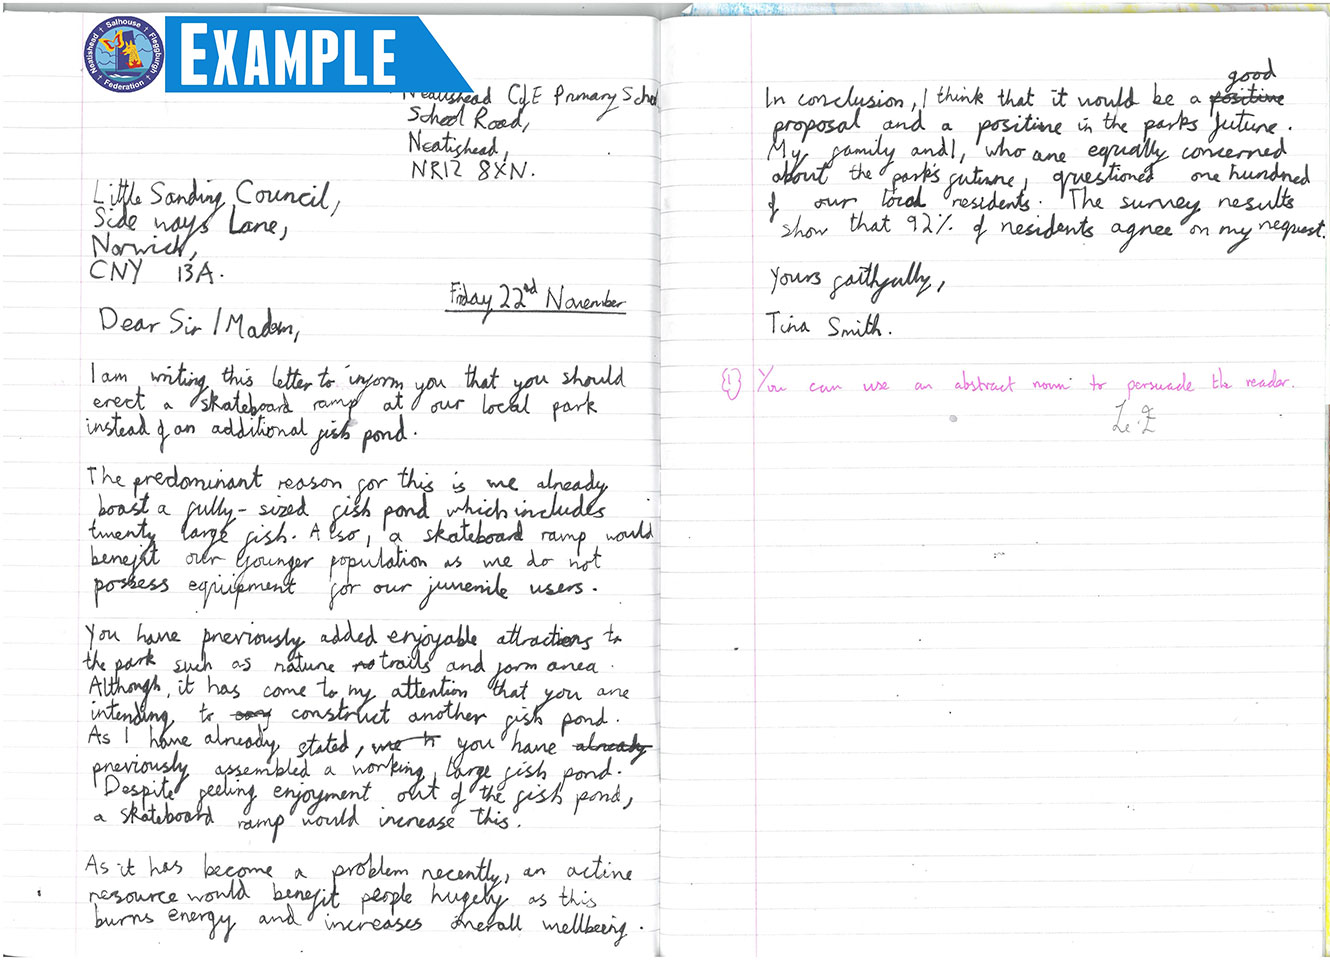 Neatishead Salhouse Fleggburgh
Federation
EXAMPLE
Neatishead CofE Primary School
School Road,
Neatishead,
NR12 8XN.
Little Sanding Council,
Side ways Lane,
Norwich,
CNY 13A.
Friday 22nd November
Dear Sir / Madam,
I am writing this letter to inform you that you should
erect a skateboard ramp at our local park
instead of an additional fish pond.
The predominant reason for this is we already
boast a fully-sized fish pond which includes
twenty large fish. Also, a skateboard ramp would
benefit our younger population as we do not
possess equiipment for our juvenile users.
You have previously added enjoyable attractions to
the park such as nature trails and farm area.
Although, it has come to my attention that you are
intending to construct another fish pond.
As I have already stated, you have already
previously assembled a working, large fish pond.
Despite feeling enjoyment out of the fish pond,
a skateboard ramp would increase this.
As it has become a problem recently, an active
resource would benefit people hugely as this
burns energy and increases overall wellbeing.
good
In conclusion, I think that it would be a positive
proposal and a positive in the parks future.
My family and I, who are equally concerned
about the park's future, questioned one hundred
of our local residents. The survey results
show that 92% of residents agree on my request.
Yours faithfully,
Tina Smith.
1 You can use an abstract noun to persuade the reader.